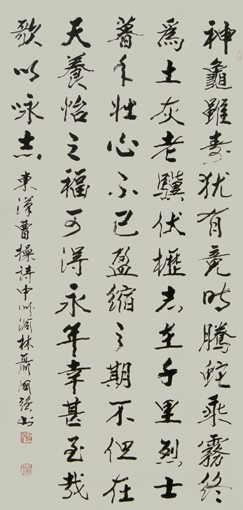 神龜雖壽猶有竟時騰蛇乘霧終
為土灰老驥伏櫪志在千里烈士
暮年壯心不已盈縮之期不但在
天養怡之福可得永年幸甚至哉
歌以咏志 東漢曹操詩中州林書